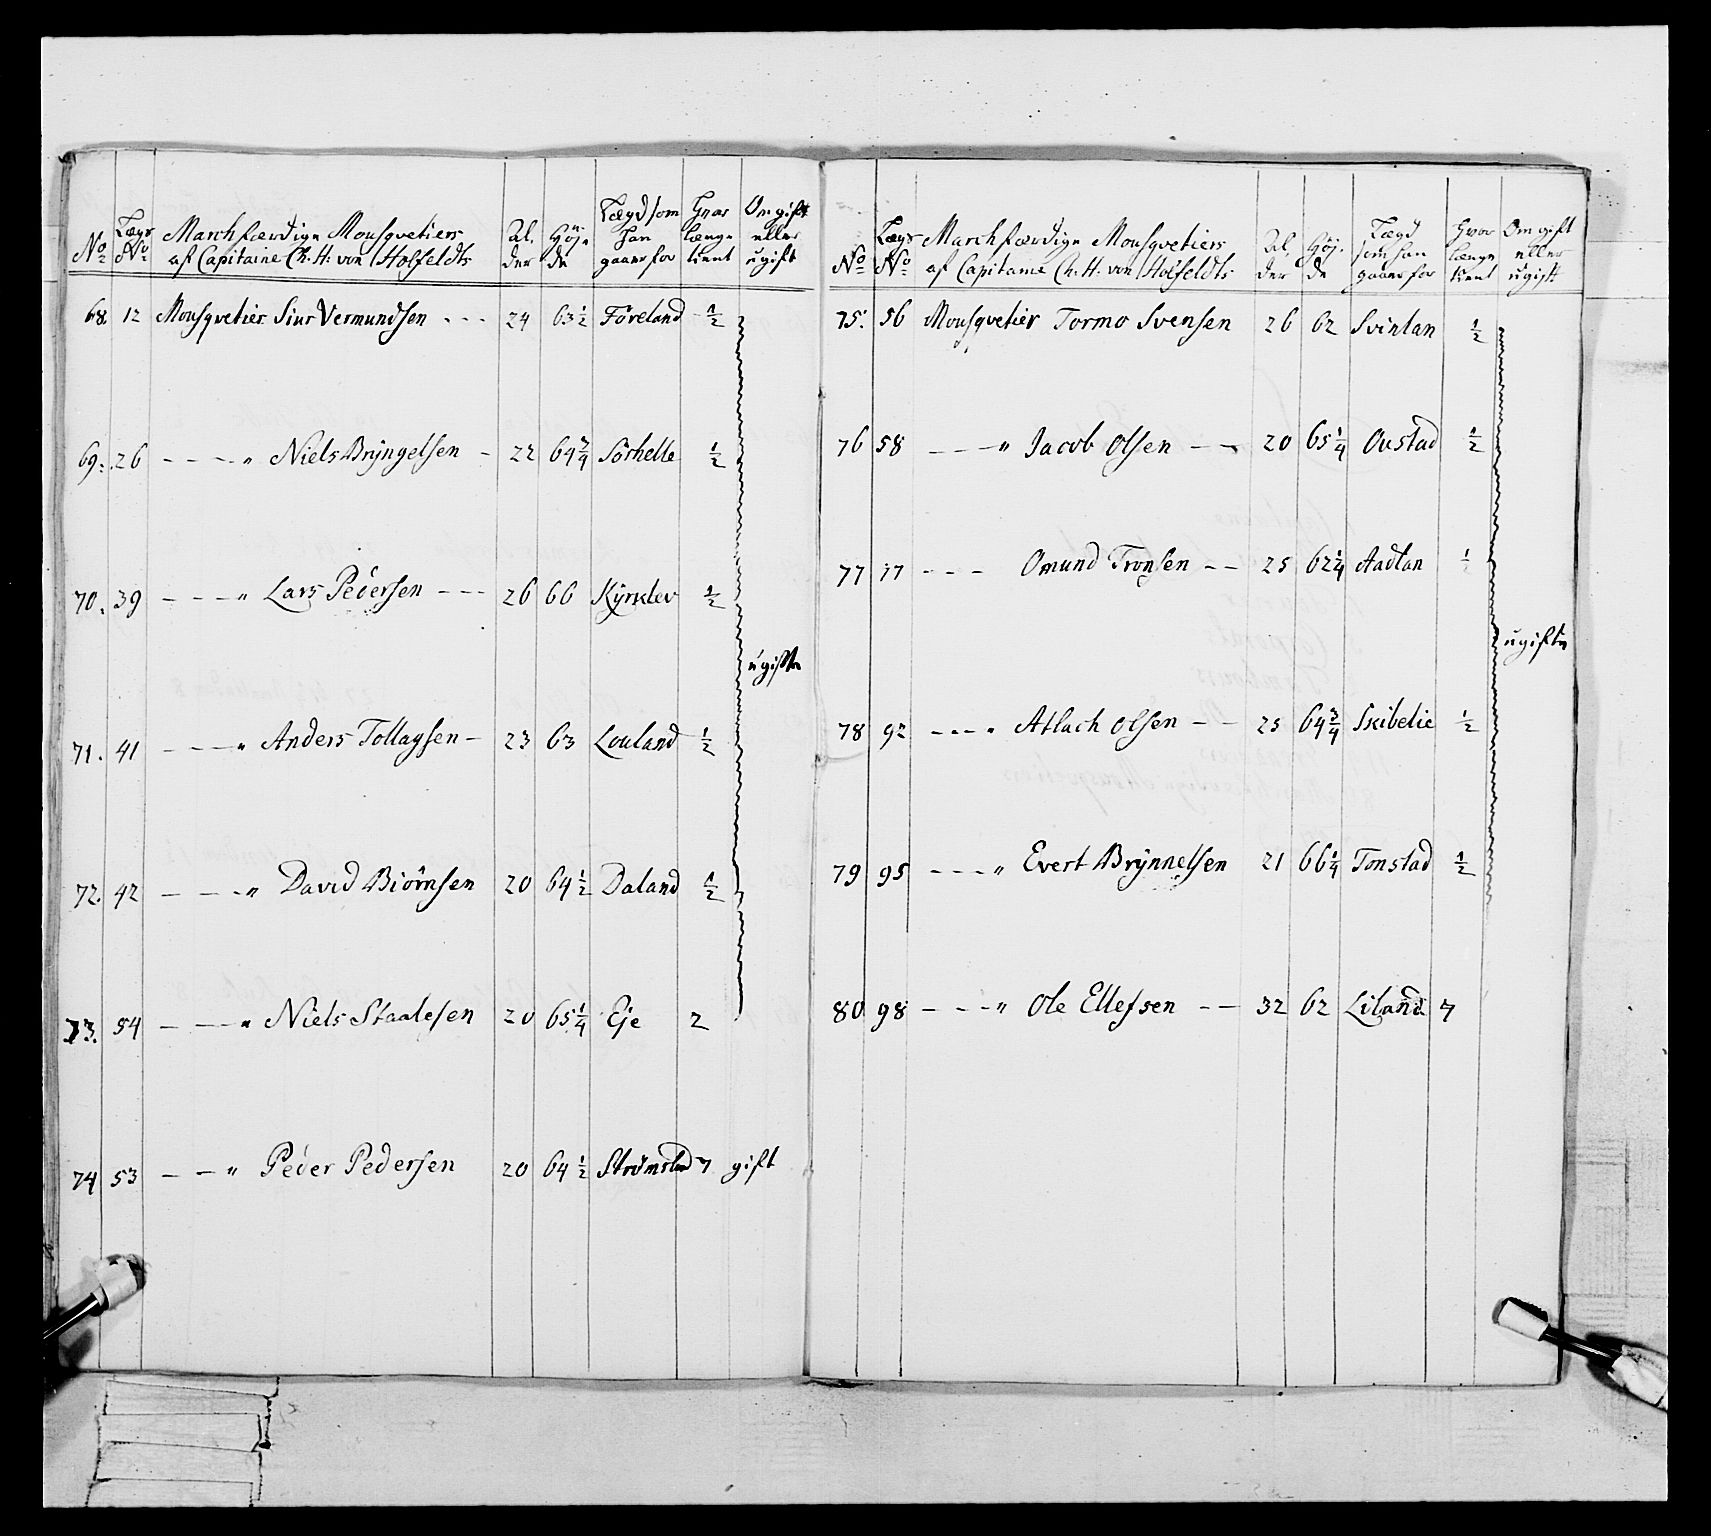 No | Lægs No | Marchfærdige Mousqvetiers af Capitaine Ch: H: von Holfeldts | Al. der | Høj- de | Lægd som han gaaer for | Hvor længe tient | Om gift eller ugift
68. | 12 | Mousqvetier Siur Vermundsen - - - | 24 | 63 1/2 | Föreland | 1/2
69. | 26 | - - - - " Niels Brÿngelsen - | 22 | 64 3/4 | Sörhelle | 1/2
70. | 39 | - - - - " Lars Pedersen - - - | 26 | 66 | Kÿrklev | 1/2
ugifte
71. | 41 | - - - - " Anders Tollagsen - | 23 | 63 | Louland | 1/2
72. | 42 | - - - - " David Biörnsen | 20 | 64 1/2 | Daland | 1/2
73. | 54 | - - - " Niels Staalesen | 20 | 65 1/4 | Eje | 2
74 | 53 | - - " Peder Pedersen | 20 | 64 1/2 | Strömsted | 7 | gift
No | Lægs No | Marchfærdige Mousqvetiers af Capitaine Ch: H: von Holfeldts | Al. der | Höj. de | Lægd som han gaaer for | Hvor længe tient | Om gift eller ugift
75. | 56 | Mousqvetier Tormo Svensen | 26 | 62 | Svinlan | 1/2
76 | 58 | - - - - " Jacob Olsen - - | 20 | 65 1/4 | Oustad | 1/2
77 | 77 | - - - Omund Tronsen - - | 25 | 62 1/4 | Aadlan | 1/2
ugifte
78 | 92 | - - - " Atlach Olsen - - | 25 | 64 3/4 | Skibelie | 1/2
79 | 95 | - - - - " Evert Brÿnnelsen | 21 | 66 1/4 | Tonstad | 1/2
80 | 98 | - - - - " Ole Ellefsen - - | 32 | 62 | Liland | 7